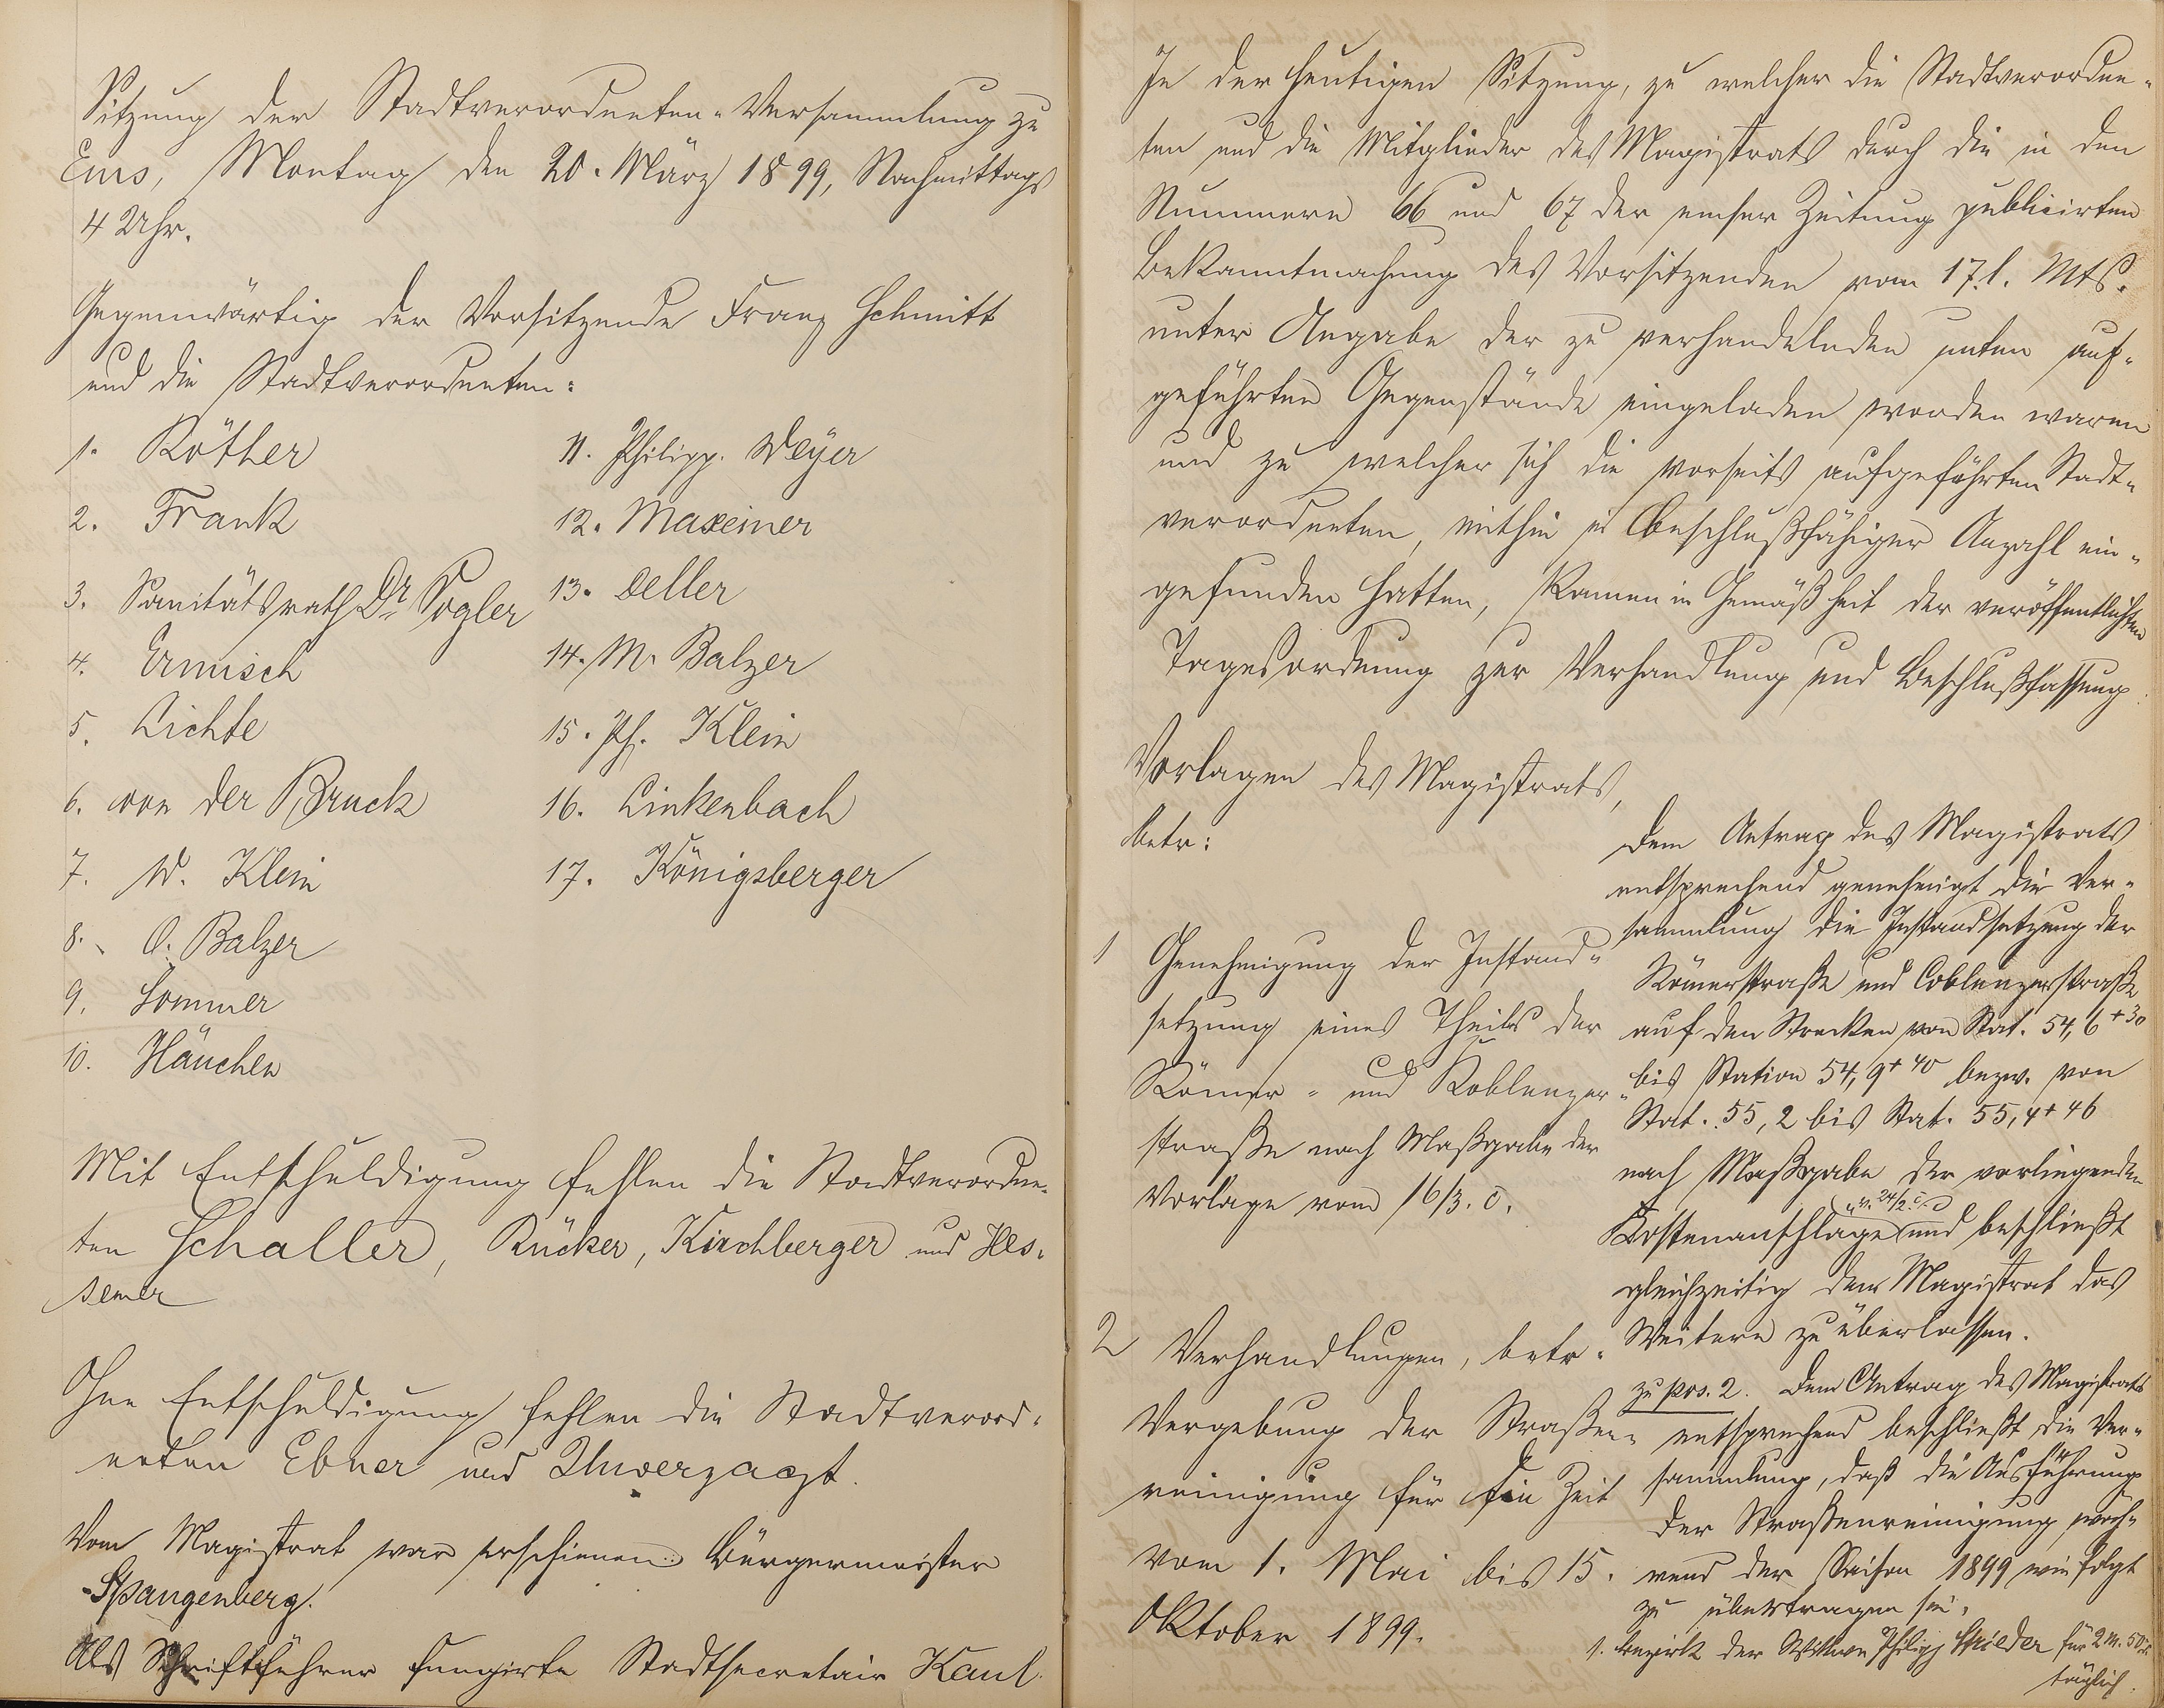 Sitzung der Stadtverordneten-Versammlung zu
Ems, Montag den 20. März 1899, Nachmittags
4 Uhr.
Gegenwärtig der Vorsitzende Franz Schmitt
und die Stadtverordneten:
1. Röther
2. Frank
3. Sanitätsrath Dr. Vogler
4. Ermisch
5. Lichte
6. von der Bruck
7. W. Klein
8. O. Balzer
9. Sommer
10. Hänchen
11. Philipp. Weyer
12. Maxeiner
13. Deller
14. M. Balzer
15. Ph. Klein
16. Linkenbach
17. Königsberger
Mit Entschuldigung fehlen die Stadtverordne-
ten Schaller, Rücker, Kirchberger und Hes-
semer
Ohne Entschuldigung fehlen die Stadtverord-
neten Ebner und Unverzagt.
Vom Magistrat war erschienen: Bürgermeister
Spangenberg.
Als Schriftführer fungirte Stadtsecretair Kaul.
In der heutigen Sitzung, zu welcher die Stadtverordne-
ten und die Mitglieder des Magistrats durch die in den
Nummern 66 und 67 der emser Zeitung publicirten
Bekanntmachung des Vorsitzenden vom 17. l. Mts.
unter Angabe der zu verhandelnden unten auf-
geführten Gegenstände eingeladen worden waren
und zu welcher sich die vorseits aufgeführten Stadt-
verordneten, mithin in beschlußfähiger Anzahl ein-
gefunden hatten, kamen in Gemäßheit der veröffentlichten
Tagesordnung zur Verhandlung und Beschlußfassung
Vorlagen des Magistrats,
betr:
1 Genehmigung der Instand-
setzung eines Theils der
Römer- und Koblenzer-
straße nach Maßgabe der
Vorlage vom 16/3. c.
Dem Antrag des Magistrats
entsprechend genehmigt die Ver-
sammlung die Instandsetzung der
Römerstraße und Coblenzerstraße
auf den Strecken von Stat. 54,6+30
bis Station 54,9+40 bezw. von
Stat. 55,2 bis Stat. 55,4+46
nach Maßgabe der vorliegenden
v. 24/2. c.
Kostenanschläge und beschließt
gleichzeitig dem Magistrat das
Weitere zu überlassen.
2 Verhandlungen, betr.
Vergebung der Straßen-
reinigung für die Zeit
vom 1. Mai bis 15.
Oktober 1899.
zu pos. 2. Dem Antrag des Magistrats
entsprechend beschließt die Ver-
sammlung, daß die Ausführung
der Straßenreinigung wäh-
rend der Saison 1899 wie folgt
zu übertragen sei,
1. Bezirk der Wittwe Philipp für 2 M. 50
täglich.